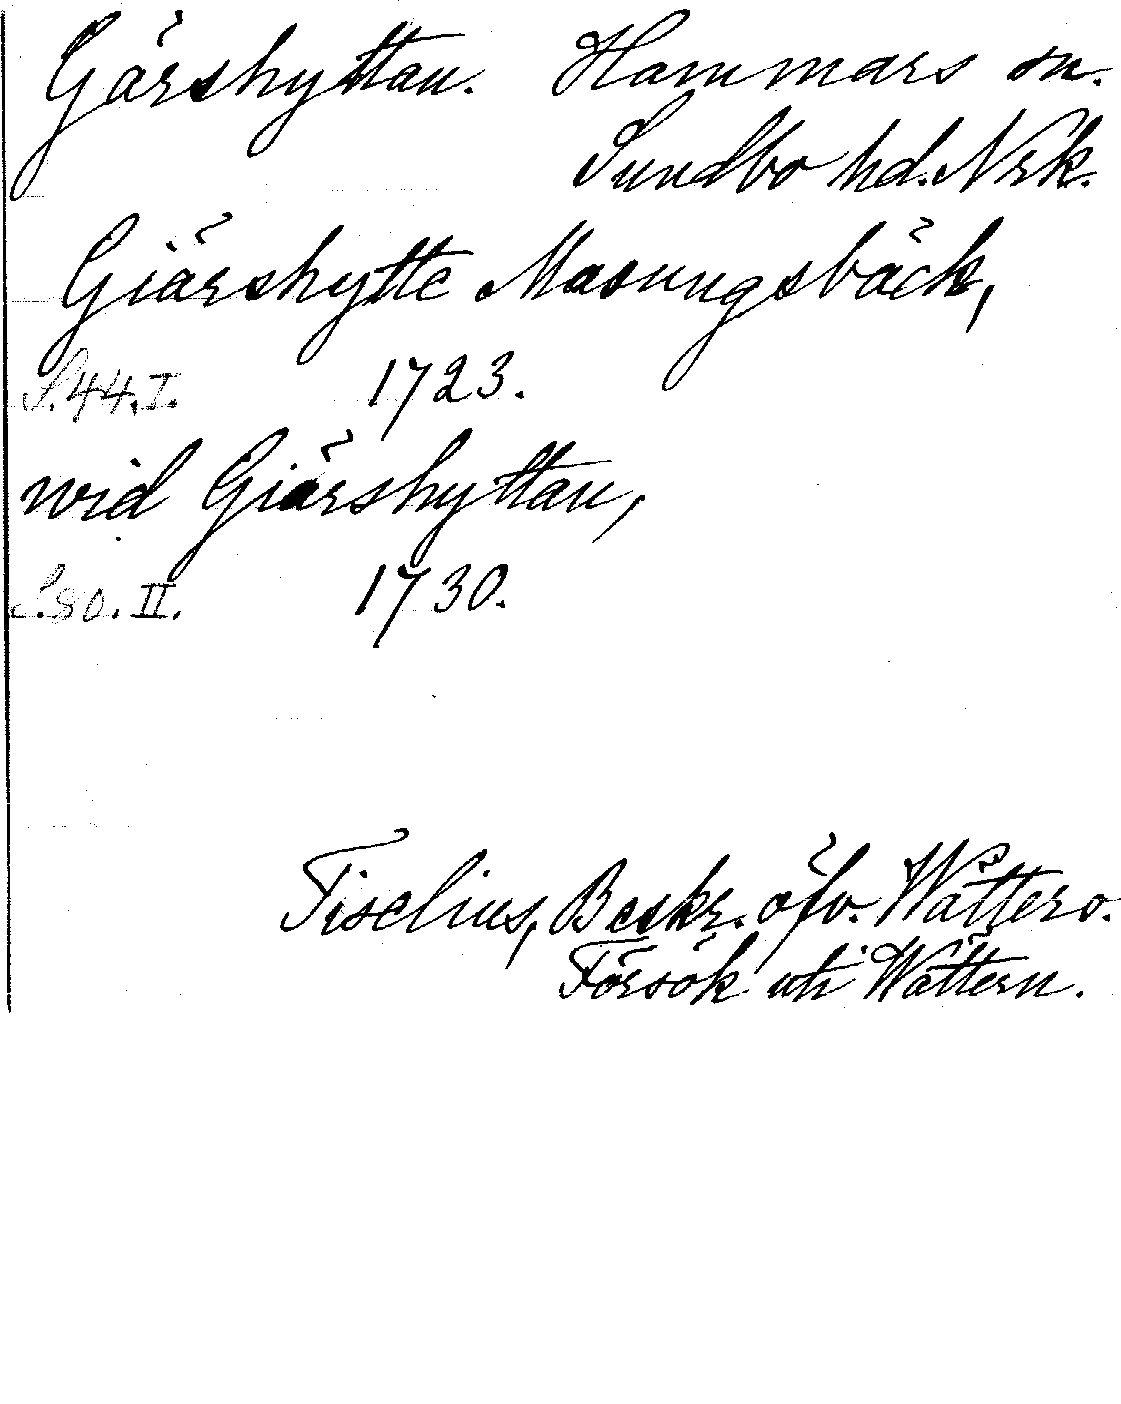 Gärshyttan. Hammars sn.
Sundbo hd. Nrk.
Giärshytte Masungsbäck,
S. 44. I. 1723.
wid Giärshyttan,
S. 80. II. 1730.
Tiselius, Beskr. öfv. Wåttero.
Försök uti Wättern.